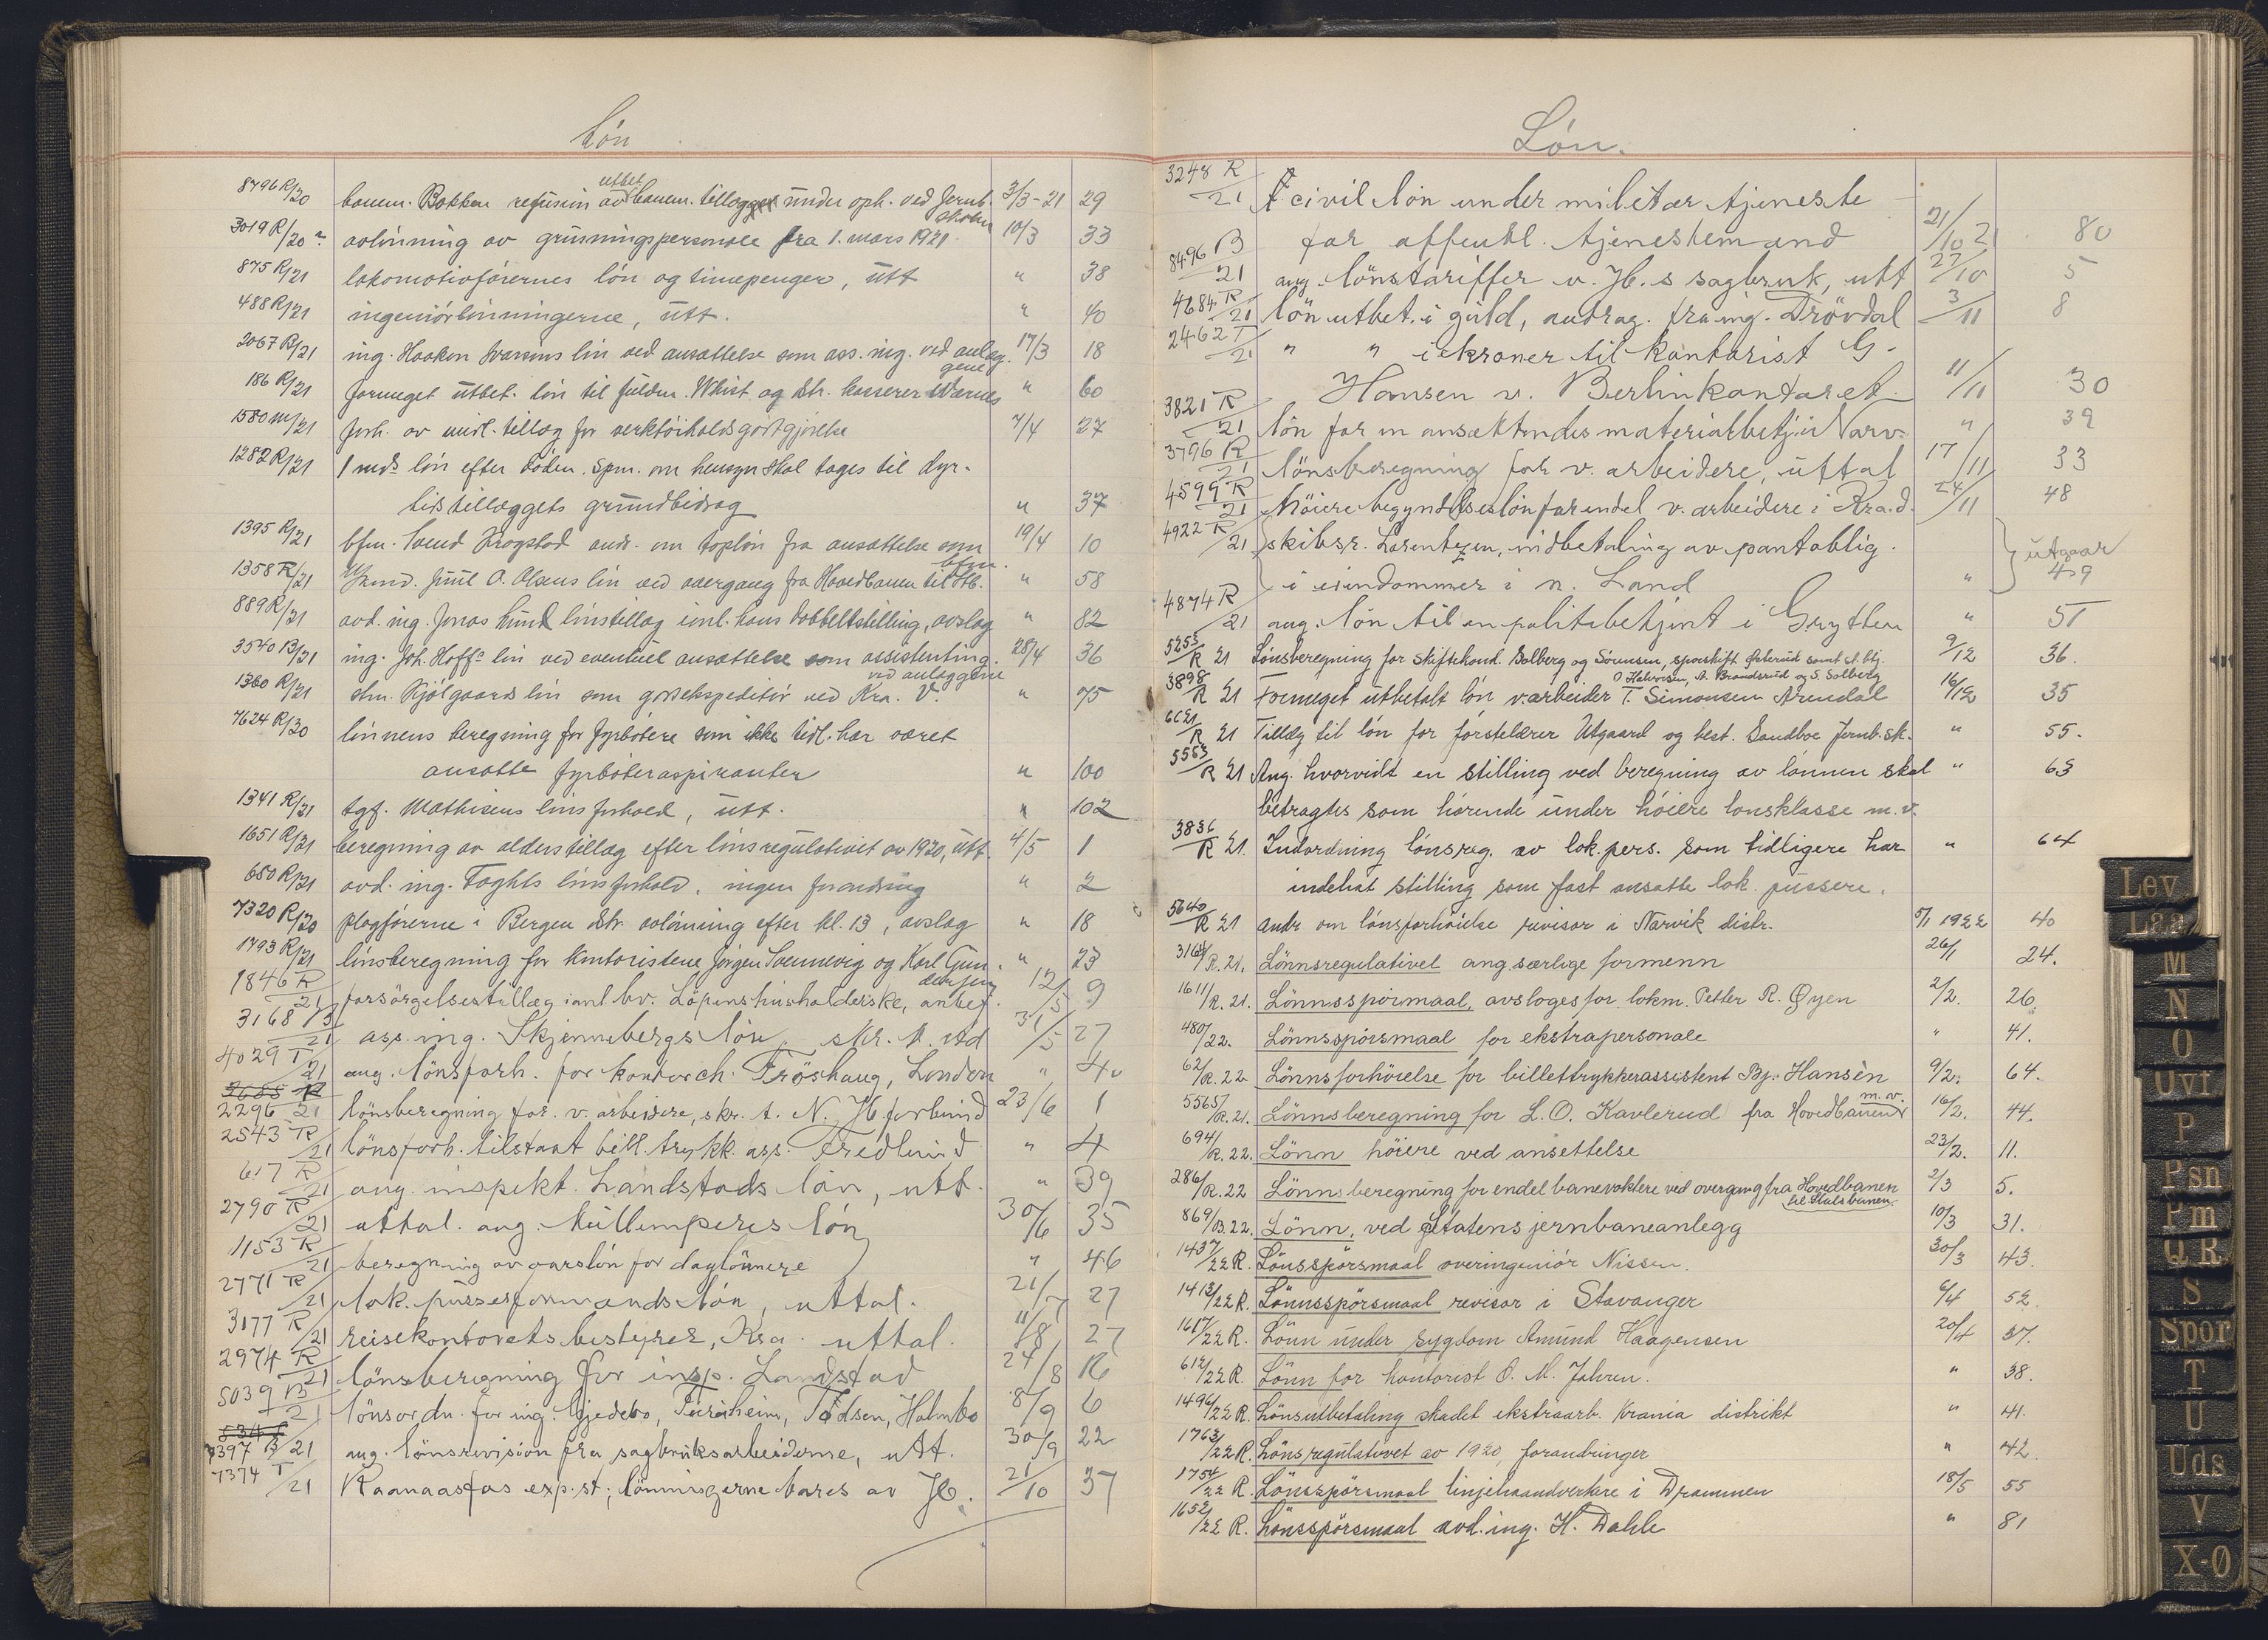 Lön
8796 R/20 banem. Bakken refusion av utbet. banem. tillægget under oph. ved Jernb. skolen 3/3-21 29
3019 R/20 avlönning av grusningspersonale fra 1. mars 1921. 10/3 33
875 R/21 lokomotivförernes lön og timepenger, utt " 38
488 R/21 ingeniörlönningerne, utt. " 40
2067 R/21 ing. Haakon lön ved ansættelse som ass. ing. ved anlæggene 17/3 18
186 R/21 formeget utbet. lön til fuldm. Whist og dstr. kasserer Warnæs " 60
1580 m/21 forh. av midl. tillæg for verktöiholdsgodtgjörelse 7/4 27
1282 R/21 1 mds lön efter döden. Spm. om hensyn skal tages til dyr-
tidstillæggets grundbidrag " 37
1395 R/21 bfm. Svend Krogstad andr. om toplön fra ansættelse som bfm. 19/4 10
1358 R/21 Juul O. Olsens lön ved overgang fra Hovedbanen til Stb. " 58
889 R/21 avd. ing. Jonas lönstillæg i anl. hans dobbeltstilling, avslag " 82
3540 B/21 ing. Joh. Hoffs lön ved eventuel ansættelse som assistenting. ved anlæggene 28/4 36
1360 R/21 stm. Kjölgaards lön som godsekspeditör ved Kra. V. " 75
7624 R/20 lönnens beregning for fyrbötere som ikke tidl. har været
ansatte fyrböteraspiranter " 100
1341 R/21 tgf. Mathisens lönsforhold, utt. " 102
1651 R/21 beregning av alderstillæg efter lönsregulativet av 1920, utt. 4/5 1
650 R/21 avd. ing. Foghts lönsforhold, ingen forandring " 2
7320 R/20 plogförerne i Bergen dstr. avlönning efter kl. 13, avslag " 18
1793 R/21 lönsberegning for kontoristene Jörgen Svennevig og Karl Gundersen " 23
1846 R/21 forsörgelsestillæg i anl bv. Löpens husholderske, anbef. 12/5 9
3168 B/21 ass. ing. Skjennebergs lön, skr. t. Ad 31/5 27
4029 T/21 ang. lönsforh. for kontorch. Fröshaug, London " 40
2688 R
2296 21 lönsberegning for. v. arbeidere, skr. t. N. Jb. forbund 23/6 1
2543 R/21 lönsforh. tilstaat bill. trykk. ass. Fredlund " 4
617 R/21 ang. inspekt. Landstads lön, utt. " 39
2790 R/21 uttal. ang. kullemperes lön 30/6 35
1153 R/21 beregning av aarslön for daglönnere " 46
2771 R/21 lok. pusserformands lön, uttal. 21/7 27
3177 R/21 reisekontorets bestyrer, Kra. uttal. 11/8 27
2974 R/21 lönsberegning for insp. Landstad 24/8 16
5039 B/21 lönsordn. for ing. Gjedebo, Tureheim, Tødsen, Holmbo 8/9 6
7397 B/21 ang. lönsrevision fra sagbruksarbeiderne, utt. 30/9 22
7374 T/21 Raanaasfos exp. st.; lönningerne bæres av Jb. 21/10 37
Lön.
3248 R/21 civil lön under militær tjeneste
for offentl. tjenestemænd 21/10 21 80
8496 B/21 ang. lönstariffer v. Jb.s sagbruk, utt 27/10 5
4684 R/21 lön utbet. i guld, andrag. fra ing. Drövdal 3/11 8
2462 T/21 " " i kroner til kontorist G.
Hansen v. Berlinkontoret. 11/11 30
3821 R/21 lön for en ansættendes materialbetj. i Narv. " 39
3796 R/21 lönsberegning for v. arbeidere, uttal 17/11 33
4599 R/21 höiere begyndelseslön for endel v. arbeidere i Kra. d. 24/11 48
4922 R/21 skibsr. Lorentzen, indbetaling av pantoblig.
i eiendommer i n. Land " utgaar 49
4874 R/21 ang. lön til en politibetjent i Grytten " 51
5253/R 21 Lönsberegning for skiftekond. Solberg og Sörensen, sporskift. Österud samt st. btj.
O Halvorsen, A. Brandsrud og S. Solberg 9/12 36.
3898/R 21 Formeget utbetalt lön v. arbeider T. Simonsen Arendal 16/12 35
6621/R 21 Tillæg til lön for förstelærer Utgaard og best. Sandboe Jernb. sk. " 55.
5553/R 21 Ang. hvorvidt en stilling ved beregning av lönnen skal " 63
betragtes som hörende under höiere lönsklasse m.v.
3836/R 21 Indordning lönsreg. av lok. pers. som tidligere har " 64
indehat stilling som fast ansatte lok. pussere.
5640/R 21 andr om lönsforhöielse revisor i Narvik distr. 5/1 1922 40
3164/R. 21. Lönnsregulativet ang. særlige formenn 26/1 24.
1611/R. 21. Lönnsspörsmaal, avsloges for lokm. Petter R. Øyen 2/2. 26.
480/22. Lönnsspörsmaal for ekstrapersonale " 41.
62/R. 22 Lönnsforhöielse for billettrykkerassistent Bj. Hansen 9/2. 64.
5565/R. 21. Lönnsberegning for L. O. Kavlerud fra Hovedbanen m.v. 16/2. 44.
694/R. 22. Lönn höiere ved ansettelse 23/2. 11.
286/R. 22 Lönnsberegning for endel banevoktere ved overgang fra Hovedbanen til Statsbanen. 2/3 5.
869/B. 22. Lönn, ved Statens jernbaneanlegg 10/3 31.
1437/22 R. Lönsspörsmaal overingeniör Nissen. 30/3 43.
1413/22 R. Lönnsspörsmaal revisor i Stavanger 6/4 52
1617/22 R. Lönn under sygdom Amund Haagensen 20/4 37.
612/22 R. Lönn for kontorist O. M. Jahren. " 38.
1496/22 R. Lönsutbetaling skadet ekstraarb. Krania distrikt " 41.
1763/22 R. Lönsregulativet av 1920, forandringer " 42
1754/22 R. Lönsspörsmaal linjehaandverkere i Drammen 18/5 55
1652/22 R. Lönsspörsmaal avd. ing. H. Dahle " 81
Lev
Laa
M
N
O
Uvf
P
Psn
Pm
Q R
S
Spor
T
U
Uds
V
X-Ø